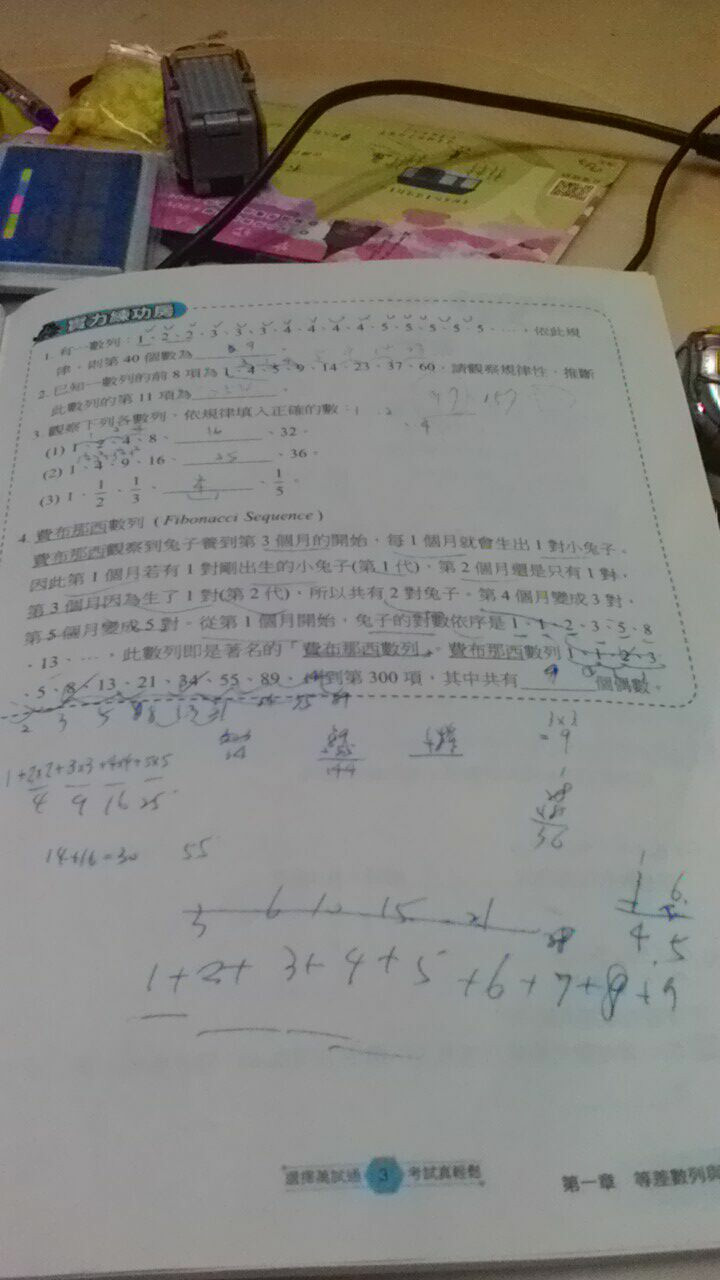 實力練功房
1. 有一數列：1、2、2、3、3、3、4、4、4、4、5、5、5、5、5、……，依此規
律，則第 40 個數為 9
2. 已知一數列的前 8 項為 1、4、5、9、14、23、37、60，請觀察規律性，推斷
此數列的第 11 項為
97 157
3. 觀察下列各數列，依規律填入正確的數：
(1) 1、2、4、8、16、32。
(2) 1、4、9、16、25、36。
(3) 1、1/2、1/3、1/4、1/5。
4. 費布那西數列 (Fibonacci Sequence)
費布那西觀察到兔子養到第 3 個月的開始，每 1 個月就會生出 1 對小兔子。
因此第 1 個月若有 1 對剛出生的小兔子(第 1 代)，第 2 個月還是只有 1 對，
第 3 個月因為生了 1 對(第 2 代)，所以共有 2 對兔子。第 4 個月變成 3 對，
第 5 個月變成 5 對。從第 1 個月開始，兔子的對數依序是 1、1、2、3、5、8
、13、……，此數列即是著名的「費布那西數列」。費布那西數列 1、1、2、3
、5、8、13、21、34、55、89、……到第 300 項，其中共有 個偶數。
2 3 5 8 13 21 55 89
3x3
= 9
144
1+2x2+3x3+4x4+5x5
4 9 16 25
36
14+16=30 55
3 6 10 15 21 28
1 6
4 5
1+2+3+4+5+6+7+8+9
選擇菁試通 3 考試真輕鬆
第一章 等差數列與